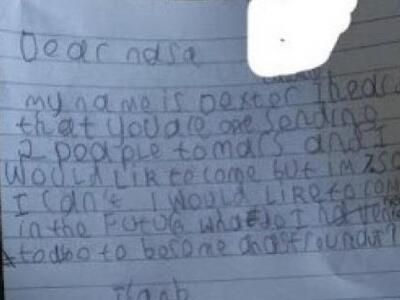 Dear nasa
my name is Dexter I heard
that you are one sending
2 poaple to mars and I
WouLD LiK to come but im 7 so
I can't I would LiKe to com
in the FutuG do I
to do to become an astrounaut?